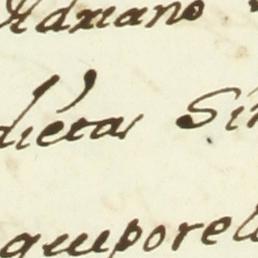 Adriano
dietas Sin
queporel